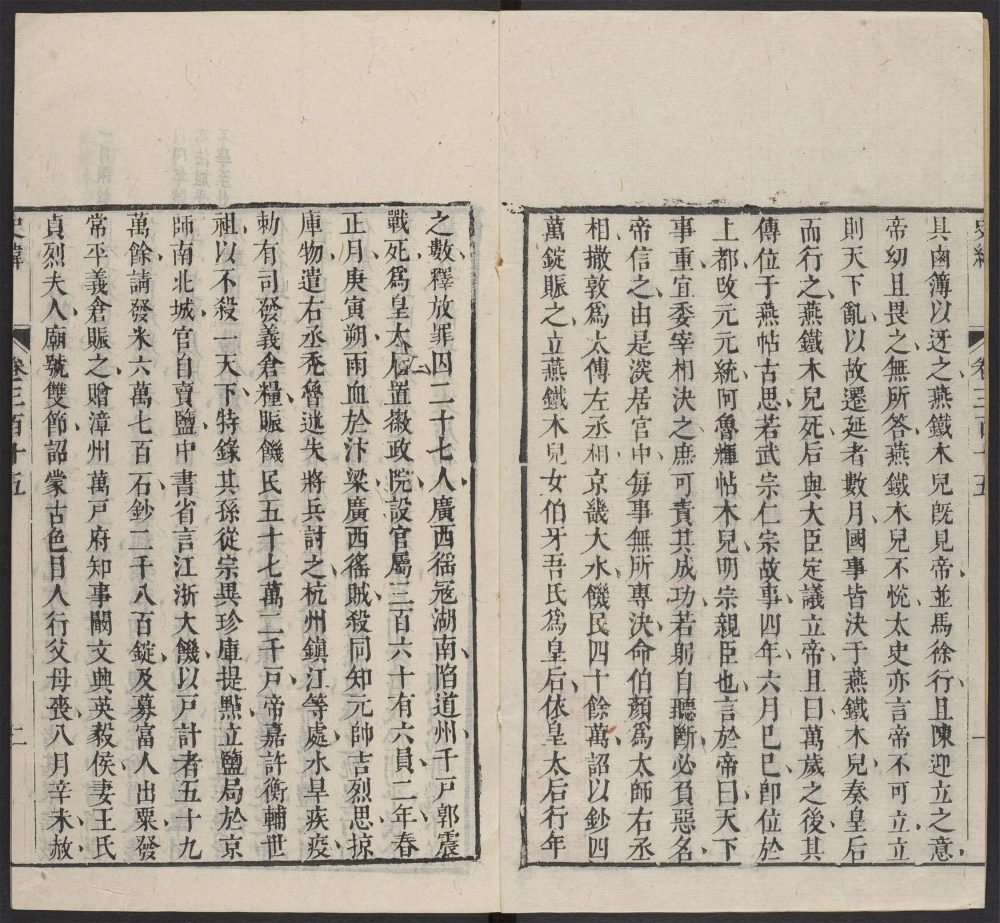 具鹵簿以迓之燕鐵木兒旣見帝並馬徐行且陳迎立之意
帝幼且畏之無所答燕鐵木兒不悅太史亦言帝不可立立
則天下亂以故遷延者數月國事皆決于燕鐵木兒奏皇后
而行之燕鐵木兒死后與大臣定議立帝且曰萬歲之後其
傳位于燕帖古思若武宗仁宗故事四年六月己巳卽位於
上都改元元統阿魯輝帖木兒明宗親臣也言於帝曰天下
事重宜委宰相決之庶可責其成功若躬自聽斷必負惡名
帝信之由是深居宮中每事無所專決命伯顏爲太師右丞
相撒敦爲太傅左丞相京畿大水饑民四十餘萬詔以鈔四
萬錠賑之立燕鐵木兒女伯牙吾氏爲皇后依皇太后行年
之數釋放罪囚二十七人廣西徭寇湖南陷道州千戸郭震
戰死爲皇太后置徽政院設官屬三百六十有六員二年春
正月庚寅朔雨血於汴梁廣西徭賊殺同知元帥吉烈思掠
庫物遣右丞禿魯迷失將兵討之杭州鎭江等處水旱疾疫
勅有司發義倉糧賑饑民五十七萬二千戸帝嘉許衡輔世
祖以不殺一天下特錄其孫從宗異珍庫提點立鹽局於京
師南北城官自賣鹽中書省言江浙大饑以戸計者五十九
萬餘請發米六萬七百石鈔二千八百錠及募富人出粟發
常平義倉賑之贈漳州萬戸府知事闞文興英毅侯妻王氏
貞烈夫人廟號雙節詔蒙古色目人行父母喪八月辛未赦
史緯
卷三百十五
二